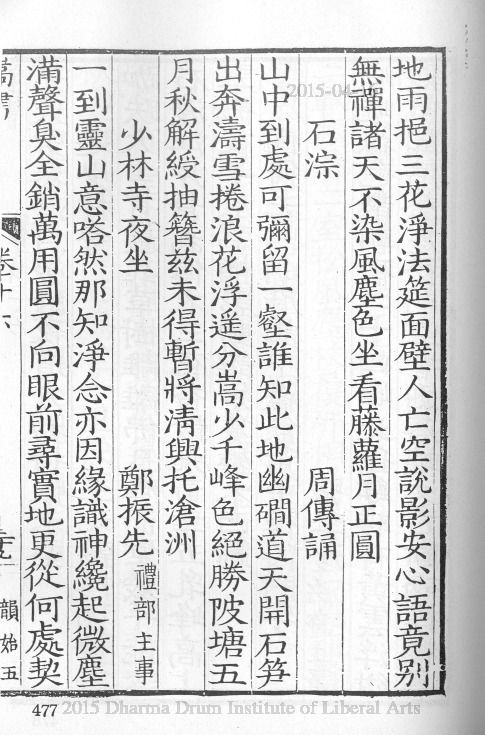 地雨挹三花淨法筵面壁人亡空說影安心語竟別
無禪諸天不染風塵色坐看藤蘿月正圓
石淙 周傳誦
山中到處可彌留一壑誰知此地幽磵道天開石笋
出奔濤雪捲浪花浮遥分嵩少千峰色絕勝陂塘五
月秋解綬抽簪兹未得暫將淸興托滄洲
少林寺夜坐 鄭振先 禮部主事
一到靈山意嗒然那知淨念亦因緣識神纔起微塵
滿聲臭全銷萬用圓不向眼前尋實地更從何處契
嵩書
卷十六
韻始五
477
2015 Dharma Drum Institute of Liberal Arts